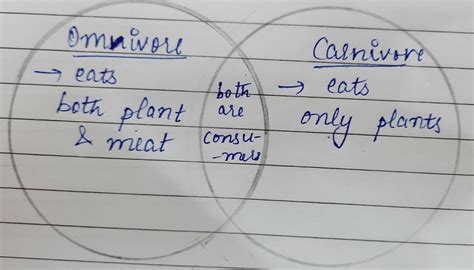 Omnivore
→ eats
both plant
& meat
both
are
consu-
-mers
Carnivore
→ eats
only plants